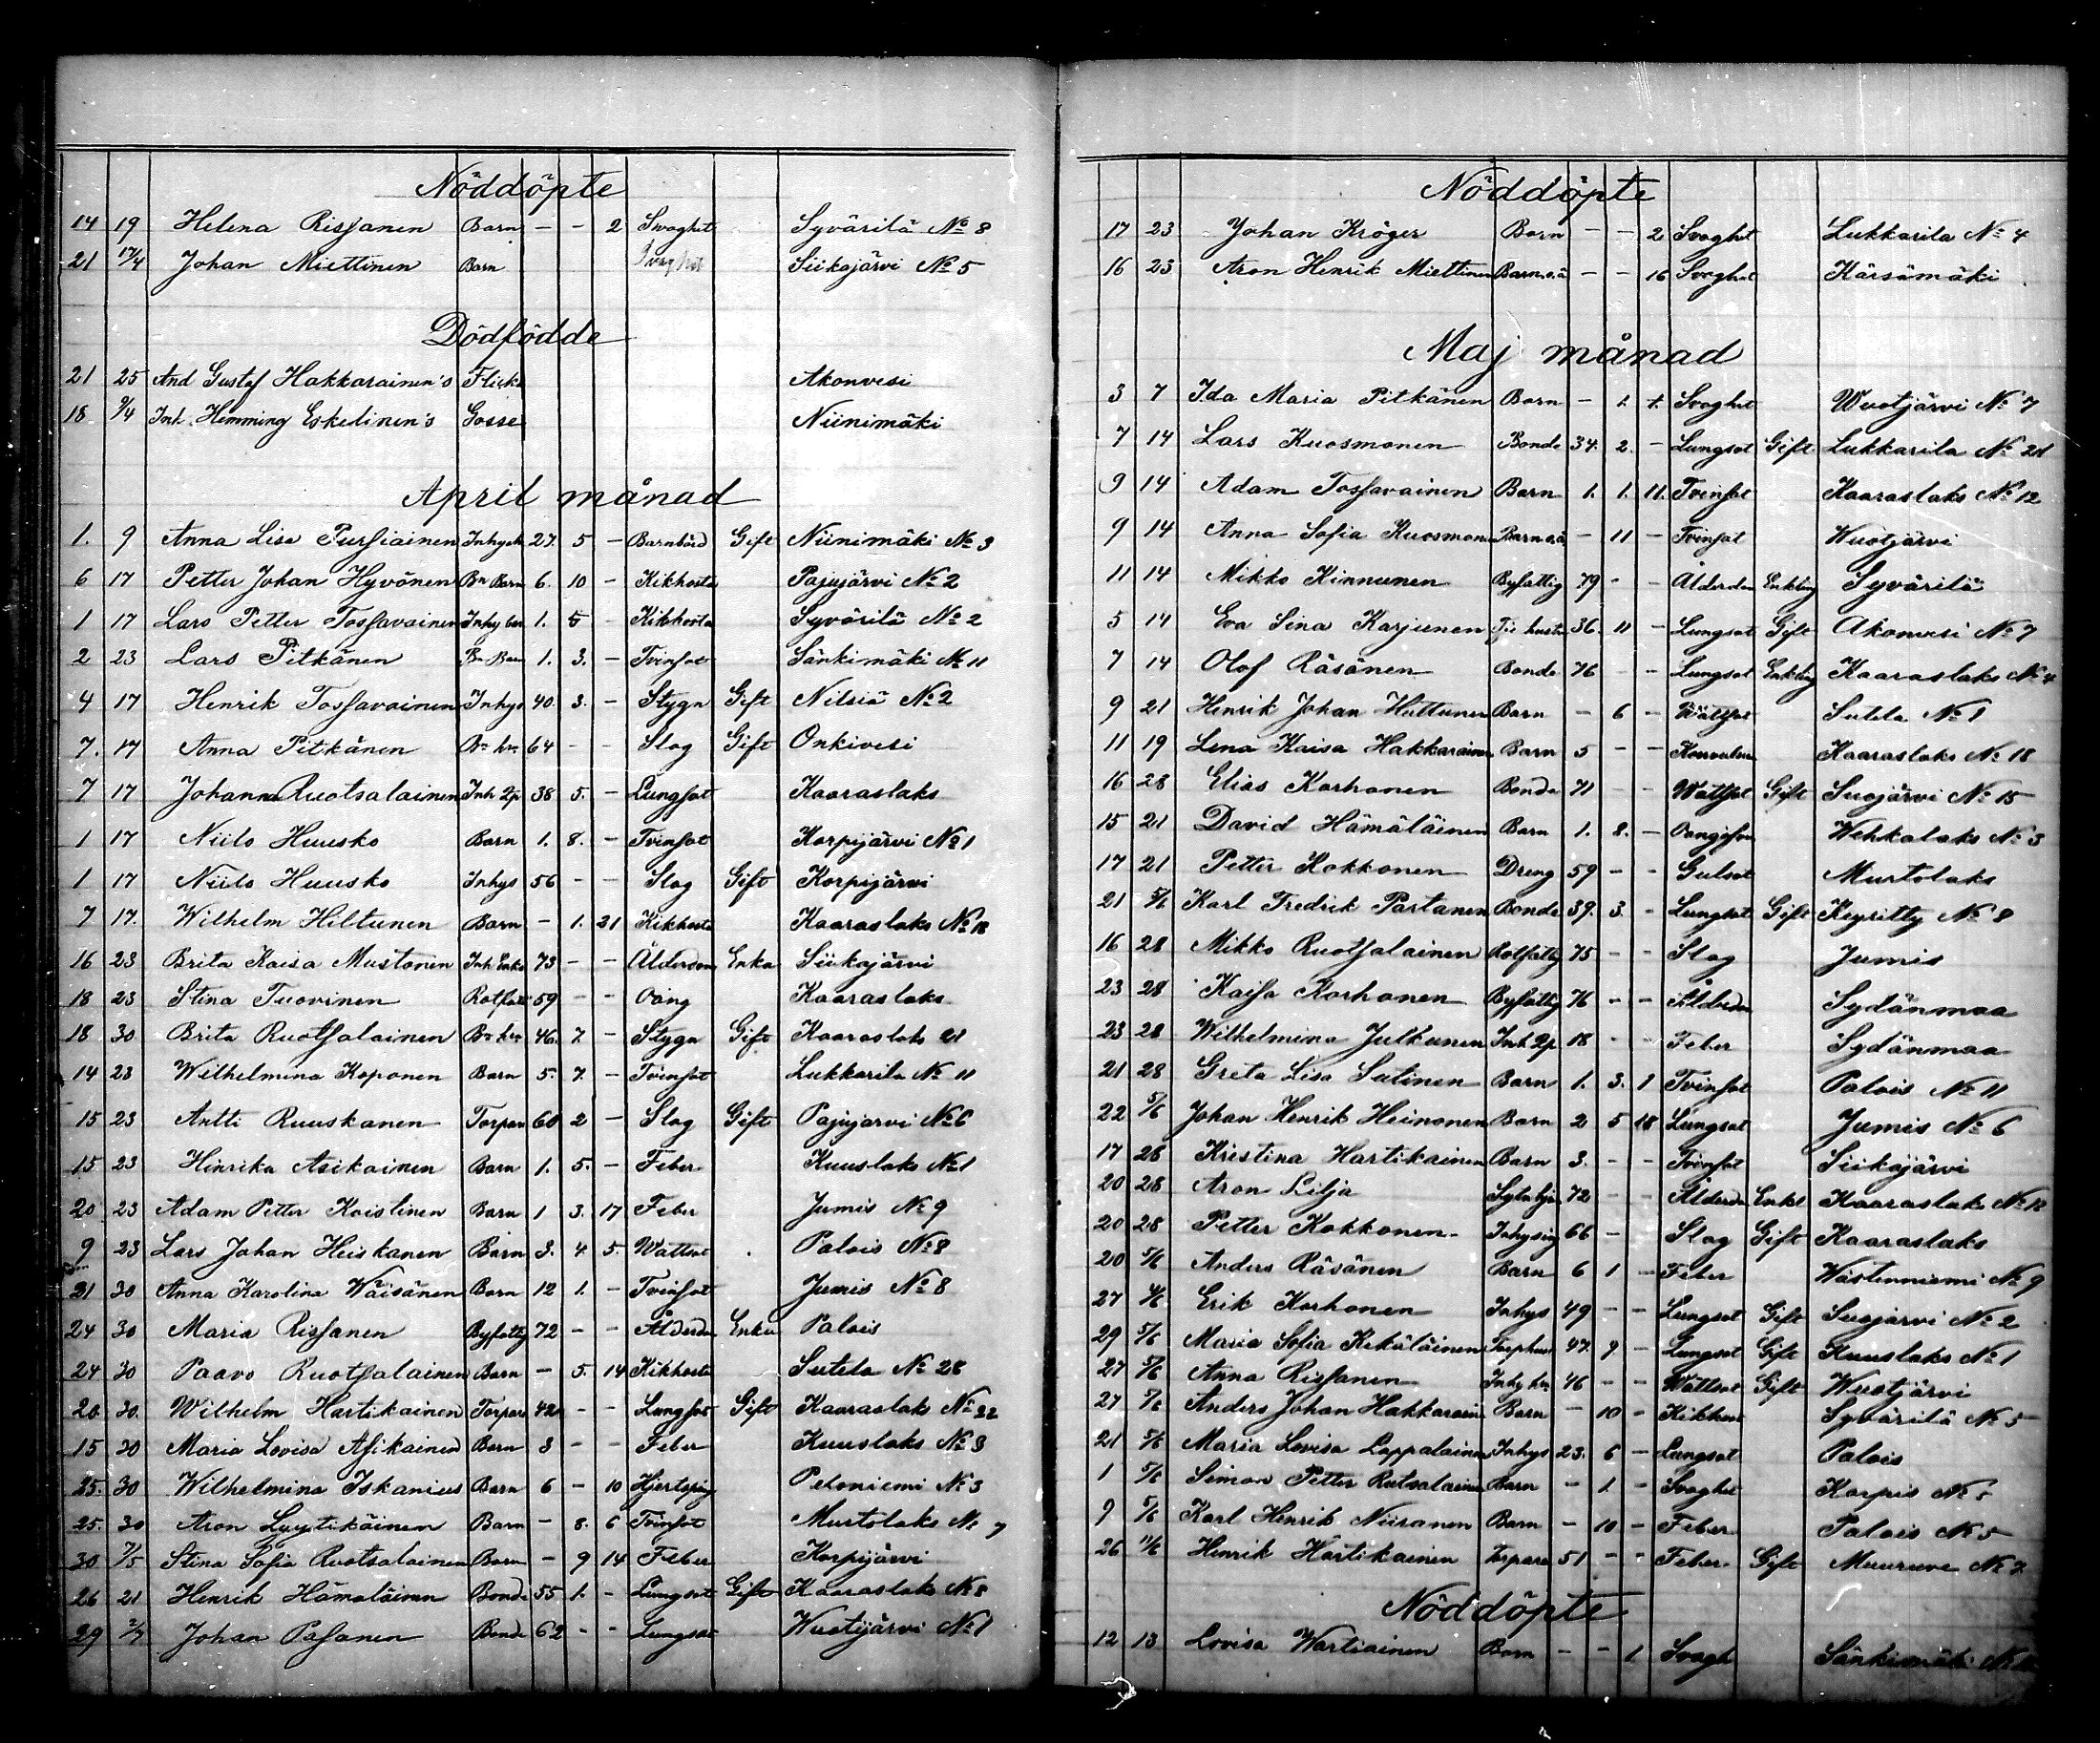 Nöddöpte
14 19 Helena Rissanen Barn - - 2 Svaghet Syvärilä No 8
21 17/4 Johan Miettinen Barn Svaghet Siikajärvi No 5
Dödfödde
21 25 And Gustaf Hakkarainen's Flicka Akonvesi
18 9/4 Inh. Hemming Eskelinen's Gosse Niinimäki
April månad
1. 9 Anna Lisa Pursiainen 27. 5 - Barnbörd Gift Niinimäki No 3
6 17 Petter Johan Hyvönen Bn Barn 6. 10 - Kikhosta Pajujärvi No 2
1 17 Lars Petter Tossavainen 1. 5 - Kikhosta Syvärilä No 2
2 23 Lars Pitkänen Bn Barn 1. 3. - Tvinsot Sänkimäki No 11
4 17 Henrik Tossavainen Inhys 40. 3. - Stygn Gift Nilsiä No 2
7. 17 Anna Pitkänen 64 - - Slag Gift Onkivesi
7 17 Johanna Ruotsalainen 38 5. - Lungsot Kaaraslaks
1 17 Niilo Huusko Barn 1. 8. - Tvinsot Korpijärvi No 1
1 17 Niilo Huusko Inhys 56 - - Slag Gift Korpijärvi
7 17. Wilhelm Hiltunen Barn - 1. 21 Kikhosta Kaaraslaks No 18
16 23 Brita Kaisa Mustonen Inh Enka 73 - - Ålderdom Enka Siikajärvi
18 23 Stina Tuovinen 59 - - Kaaraslaks
18 30 Brita Ruotsalainen 46. 7. - Stygn Gift Kaaraslaks 21
14 23 Wilhelmina Koponen Barn 5. 7. - Tvinsot Lukkarila No 11
15 23 Antti Ruuskanen Torpare 60 2 - Slag Gift Pajujärvi No 6
15 23 Hinrika Asikainen Barn 1. 5. - Feber Kuuslaks No 1
20 23 Adam Petter Koistinen Barn 1 3. 17 Feber Jumis No 9
9 23 Lars Johan Heiskanen Barn 3. 4. 5. Wattsot Palois No 8
21 30 Anna Karolina Wäisänen Barn 12 1. - Tvinsot Jumis No 8
24 30 Maria Rissanen Byfattig 72 - - Ålderdom Enka Palois
24 30 Paavo Ruotsalainen Barn - 5. 14 Kikhosta Sutela No 28
20. 30. Wilhelm Hartikainen Torpare 42 - - Lungsot Gift Kaaraslaks No 22
15 30 Maria Lovisa Asikainen Barn 3 - - Feber Kuuslaks No 3
25. 30 Wilhelmina Iskanius Barn 6 - 10 Peloniemi No 3
25. 30 Aron Lyytikäinen Barn - 8. 6 Tvinsot Murtolaks No 7
30 7/5 Stina Sofia Ruotsalainen Barn - 9 14 Feber Korpijärvi
26 21 Henrik Hämäläinen Bonde 55 1. - Lungsot Gift Kaaraslaks No 8
29 Johan Pasanen Bonde 62 - - Lungsot Wuotjärvi No 1
Nöddöpte
17 23 Johan Kröger Barn - - 2 Svaghet Lukkarila No 4
16 23 Aron Henrik Miettinen Barn o.ä - - 16 Svaghet Kärsämäki
Maj månad
3 7 Ida Maria Pitkänen Barn - 1. 1. Svaghet Wuotjärvi No 7
7 14 Lars Kuosmonen Bonde 34. 2. - Lungsot Gift Lukkarila No 21
9 14 Adam Tossavainen Barn 1. 1. 11. Tvinsot Kaaraslaks No 12
9 14 Anna Sofia Kuosmonen Barn o.ä - 11 - Tvinsot Wuotjärvi
11 14 Mikko Kinnunen Byfattig 79 - - Ålderdom Enkling Syvärilä
5 14 Eva Sina Karjunen 36. 11 - Lungsot Gift Akonvesi No 7
7 14 Olof Räsänen Bonde 76 - - Lungsot Enkling Kaaraslaks No 4
9 21 Henrik Johan Huttunen Barn - 6 - Wattsot Sutela No 1
11 19 Lena Kaisa Hakkarainen Barn 5 - - Kaaraslaks No 18
16 28 Elias Korhonen Bonde 71 - - Wattsot Gift Suojärvi No 15
15 21 David Hämäläinen Barn 1. 8. - Wehkalaks No 3
17 21 Petter Kokkonen Dreng 59 - - Gulsot Murtolaks
21 5/6 Karl Fredrik Partanen Bonde 39. 3. - Lungsot Gift Keyritty No 8
16 28 Mikko Ruotsalainen Rotfattig 75 - - Slag Jumis
23 28 Kaisa Korhonen Byfattig 76 - - Ålderdom Sydänmaa
23 28 Wilhelmina Julkunen 18 - - Feber Sydänmaa
21 28 Greta Lisa Sutinen Barn 1. 3. 1 Tvinsot Palois No 11
22 5/6 Johan Henrik Heinonen Barn 2 5 18 Lungsot Jumis No 6
17 28 Kristina Hartikainen Barn 3. - - Tvinsot Siikajärvi
20 28 Aron Lilja 72 - - Ålderdom Enkl Kaaraslaks No 12
20 28 Petter Kokkonen Inhysing 66 - Slag Gift Kaaraslaks
20 5/6 Anders Räsänen Barn 6 1 - Feber Wästinniemi No 9
27 Erik Korhonen Inhys 49 - - Lungsot Gift Suojärvi No 2
29 5/6 Maria Sofia Kekäläinen 47. 9. - Lungsot Gift Kuuslaks No 1
27 5/6 Anna Rissanen 46 - - Wattsot Gift Wuotjärvi
27 5/6 Anders Johan Hakkarainen Barn - 10 - Kikhosta Syvärilä No 5
21 5/6 Maria Lovisa Lappalainen Inhys 23. 6 - Lungsot Palois
1 5/6 Simon Petter Rutsalainen Barn - 1. - Svaghet Korpis
9 5/6 Karl Henrik Niiranen Barn - 10 - Feber Palois No 5
26 11/6 Henrik Hartikainen Torpare 51 - - Feber Gift Muuruve No 7
Nöddöpte
12 13 Lovisa Wartiainen Barn - - 1 Svagh Sänkimäki